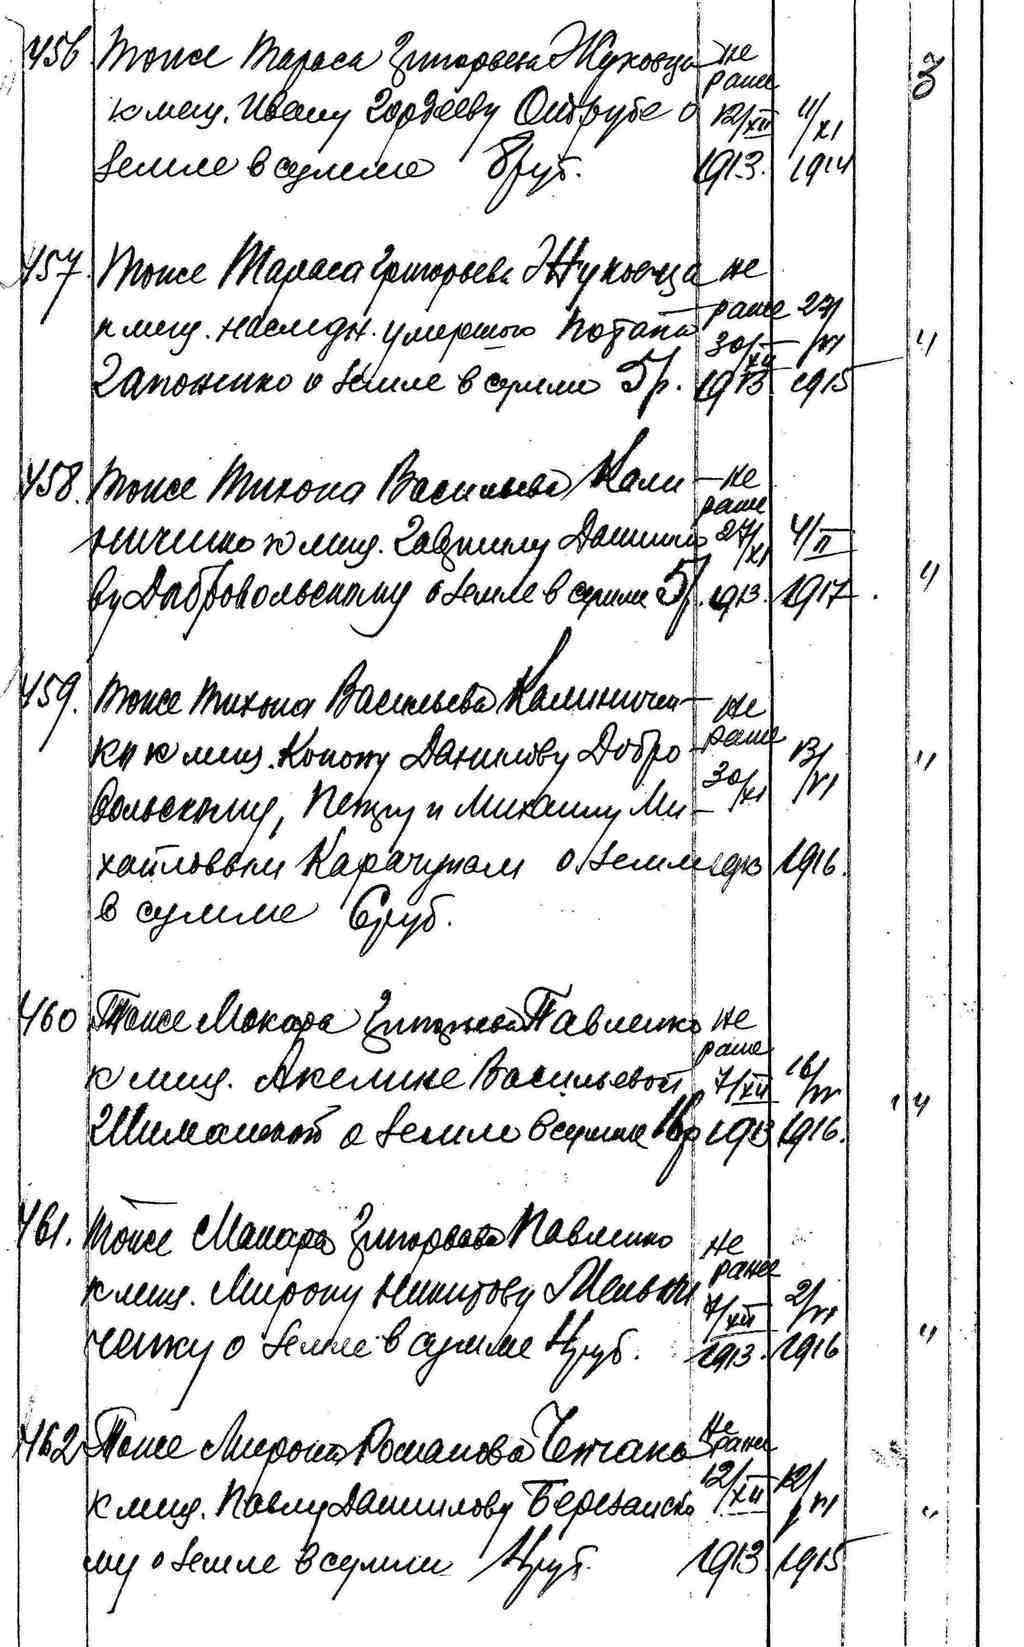 456 Тоже Тараса Григорьева Жуковца не ранее 3
к мещ. Ивану Гордееву о 12/XII 11/XI
земле в сумме 8 руб. 1913. 1914
457. Тоже Тараса Григорьева Жуковца не
к мещ. наследн. умершого Потапа ранее 27/VI
Гапоненко о земле в сумме 5 р. 30/XII 1913 1915 "
458. Тоже Тихона Васильева Кали- не ранее
ниченко к мещ. Гавриилу Данило 27/XI 4/II
ву Добровольскому о земле в сумме 5 р. 1913. 1917. "
459. Тоже Тихона Васильева Калиничен- не
ко к мещ. Конону Данилову Добро- ранее 13/VI "
вольскому, Петру и Михаилу Ми- 30/XI
хайловым Карачунам о земле 1913 1916.
в сумме 6 руб.
460 Тоже Макара Григорьева Павленко не ранее
к мещ. Акелине Васильевой 7/XII 16/VI "
о земле в сумме 16 р 1913 1916.
461. Тоже Макара Григорьева Павленко не
к мещ. Мирону Никитову Мельни ранее 2/VI
ченку о земле в сумме 4 руб. 7/XII 1913. 1916 "
462 Тоже Мирона Романова не ранее
к мещ. Павлу Данилову Березанско 12/XII 12/VI "
му о земле в сумме 4 руб. 1913 1915